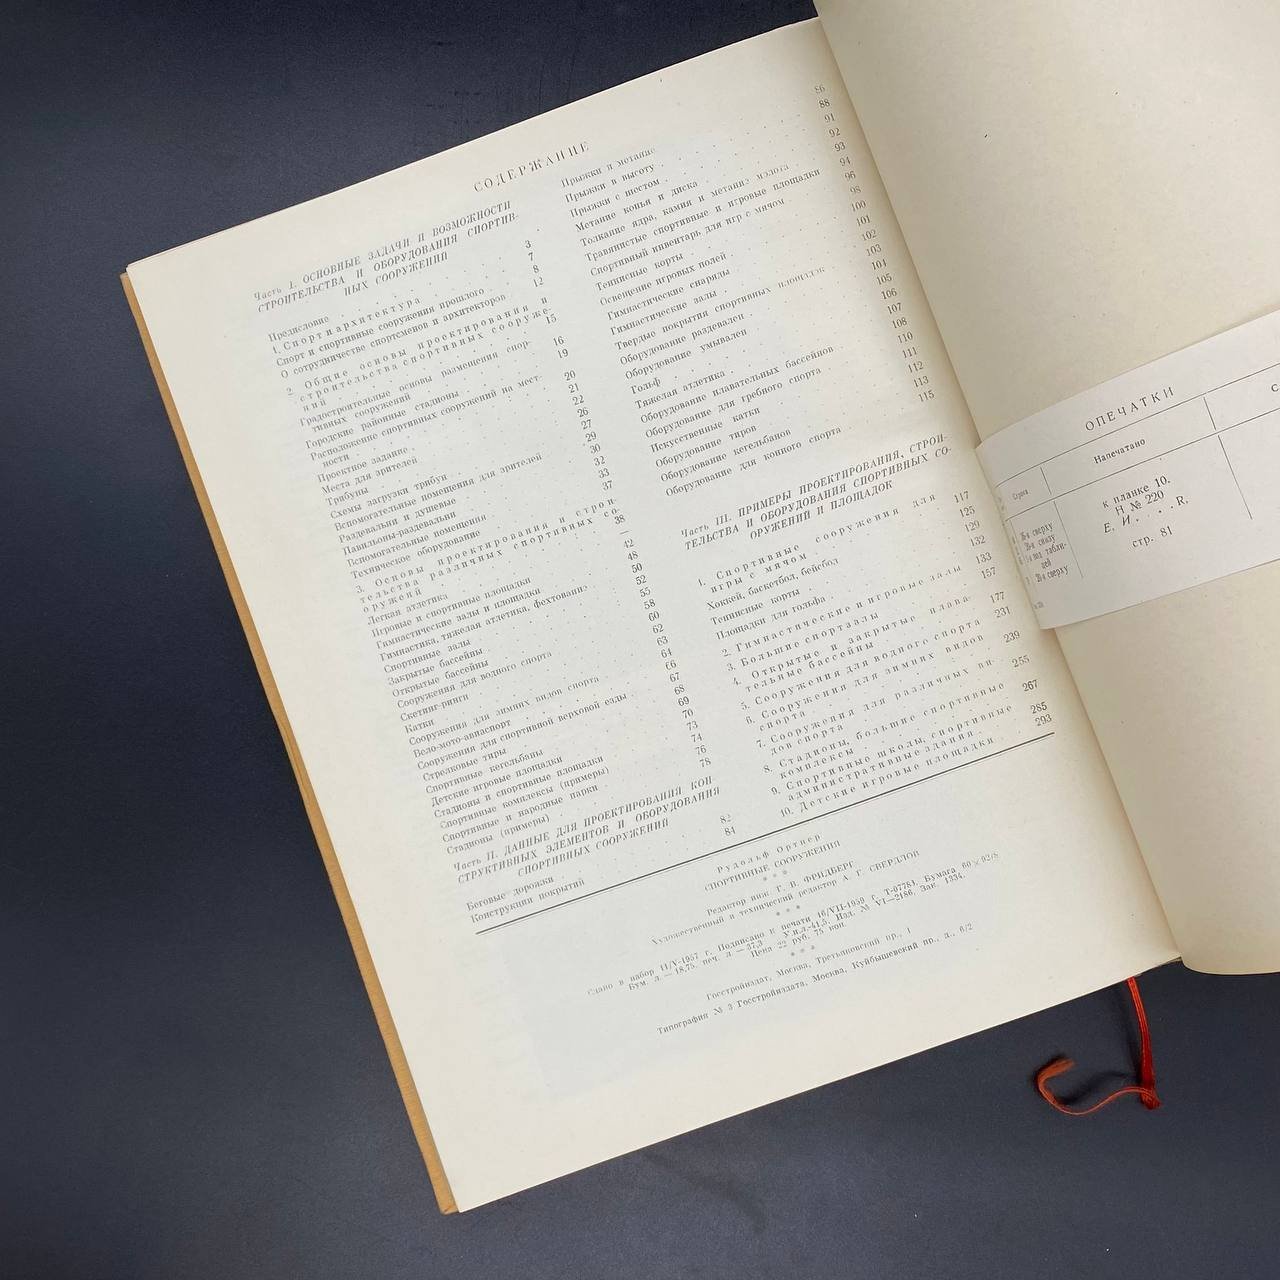 СОДЕРЖАНИЕ
Часть I. ОСНОВНЫЕ ЗАДАЧИ И ВОЗМОЖНОСТИ
СТРОИТЕЛЬСТВА И ОБОРУДОВАНИЯ СПОРТИВ-
НЫХ СООРУЖЕНИЙ
Предисловие 3
1. Спорт и архитектура 7
Спорт и спортивные сооружения прошлого 8
О сотрудничестве спортсменов и архитекторов 12
2. Общие основы проектирования и
строительства спортивных сооруже-
ний 15
Градостроительные основы размещения спор-
тивных сооружений 16
Городские районные стадионы 19
Расположение спортивных сооружений на мест-
ности 20
Проектное задание 21
Места для зрителей 22
Трибуны 26
Схемы загрузки трибун 27
Вспомогательные помещения для зрителей 29
Раздевальни и душевые 30
Павильоны-раздевальни 32
Вспомогательные помещения 33
Техническое оборудование 37
3. Основы проектирования и строи-
тельства различных спортивных со-
оружений 38
Легкая атлетика —
Игровые и спортивные площадки 42
Гимнастические залы и площадки 48
Гимнастика, тяжелая атлетика, фехтование 50
Спортивные залы 52
Закрытые бассейны 55
Открытые бассейны 58
Сооружения для водного спорта 60
Скетинг-ринги 62
Катки 63
Сооружения для зимних видов спорта 64
Вело-мото-авиаспорт 66
Сооружения для спортивной верховой езды 67
Стрелковые тиры 68
Спортивные кегельбаны 69
Детские игровые площадки 70
Стадионы и спортивные площадки 73
Спортивные комплексы (примеры) 74
Спортивные и народные парки 76
Стадионы (примеры) 78
Часть II. ДАННЫЕ ДЛЯ ПРОЕКТИРОВАНИЯ КОН-
СТРУКТИВНЫХ ЭЛЕМЕНТОВ И ОБОРУДОВАНИЯ
СПОРТИВНЫХ СООРУЖЕНИЙ
Беговые дорожки 82
Конструкции покрытий 84
Прыжки и метание 86
Прыжки в высоту 88
Прыжки с шестом 91
Метание копья и диска 92
Толкание ядра, камня и метание молота 93
Травянистые спортивные и игровые площадки 94
Спортивный инвентарь для игр с мячом 96
Теннисные корты 98
Освещение игровых полей 100
Гимнастические снаряды 101
Гимнастические залы 102
Твердые покрытия спортивных площадок 103
Оборудование раздевален 104
Оборудование умывален 105
Гольф 106
Тяжелая атлетика 107
Оборудование плавательных бассейнов 108
Оборудование для гребного спорта 110
Искусственные катки 111
Оборудование тиров 112
Оборудование кегельбанов 113
Оборудование для конного спорта 115
Часть III. ПРИМЕРЫ ПРОЕКТИРОВАНИЯ, СТРОИ-
ТЕЛЬСТВА И ОБОРУДОВАНИЯ СПОРТИВНЫХ СО-
ОРУЖЕНИЙ И ПЛОЩАДОК
1. Спортивные сооружения для
игры с мячом 117
Хоккей, баскетбол, бейсбол 125
Теннисные корты 129
Площадки для гольфа 132
2. Гимнастические и игровые залы 133
3. Большие спортзалы 157
4. Открытые и закрытые плава-
тельные бассейны 177
5. Сооружения для водного спорта 231
6. Сооружения для зимних видов
спорта 239
7. Сооружения для различных ви-
дов спорта 255
8. Стадионы, большие спортивные
комплексы 267
9. Спортивные школы, спортивные
административные здания 285
10. Детские игровые площадки 293
Рудольф Ортнер
СПОРТИВНЫЕ СООРУЖЕНИЯ
* * *
Редактор инж. Г. В. ФРИДБЕРГ
Художественный и технический редактор А. Г. СВЕРДЛОВ
* * *
Сдано в набор 11/V-1957 г. Подписано к печати 16/VII-1959 г. Т-07781. Бумага 60×92/8
Бум. л.—18,75. печ. л.—37,5 У.и.л.-41,5. Изд. № VI—2186. Зак. 1334.
Цена 22 руб. 75 коп.
* * *
Госстройиздат, Москва, Третьяковский пр., 1
Типография № 3 Госстройиздата, Москва, Куйбышевский пр., д. 6/2
ОПЕЧАТКИ
Строка
Напечатано
С
к планке 10.
Н № 220
Е. И. . . . R.
стр. 81
20-я снизу
1-я под табли-
цей
20-я сверху